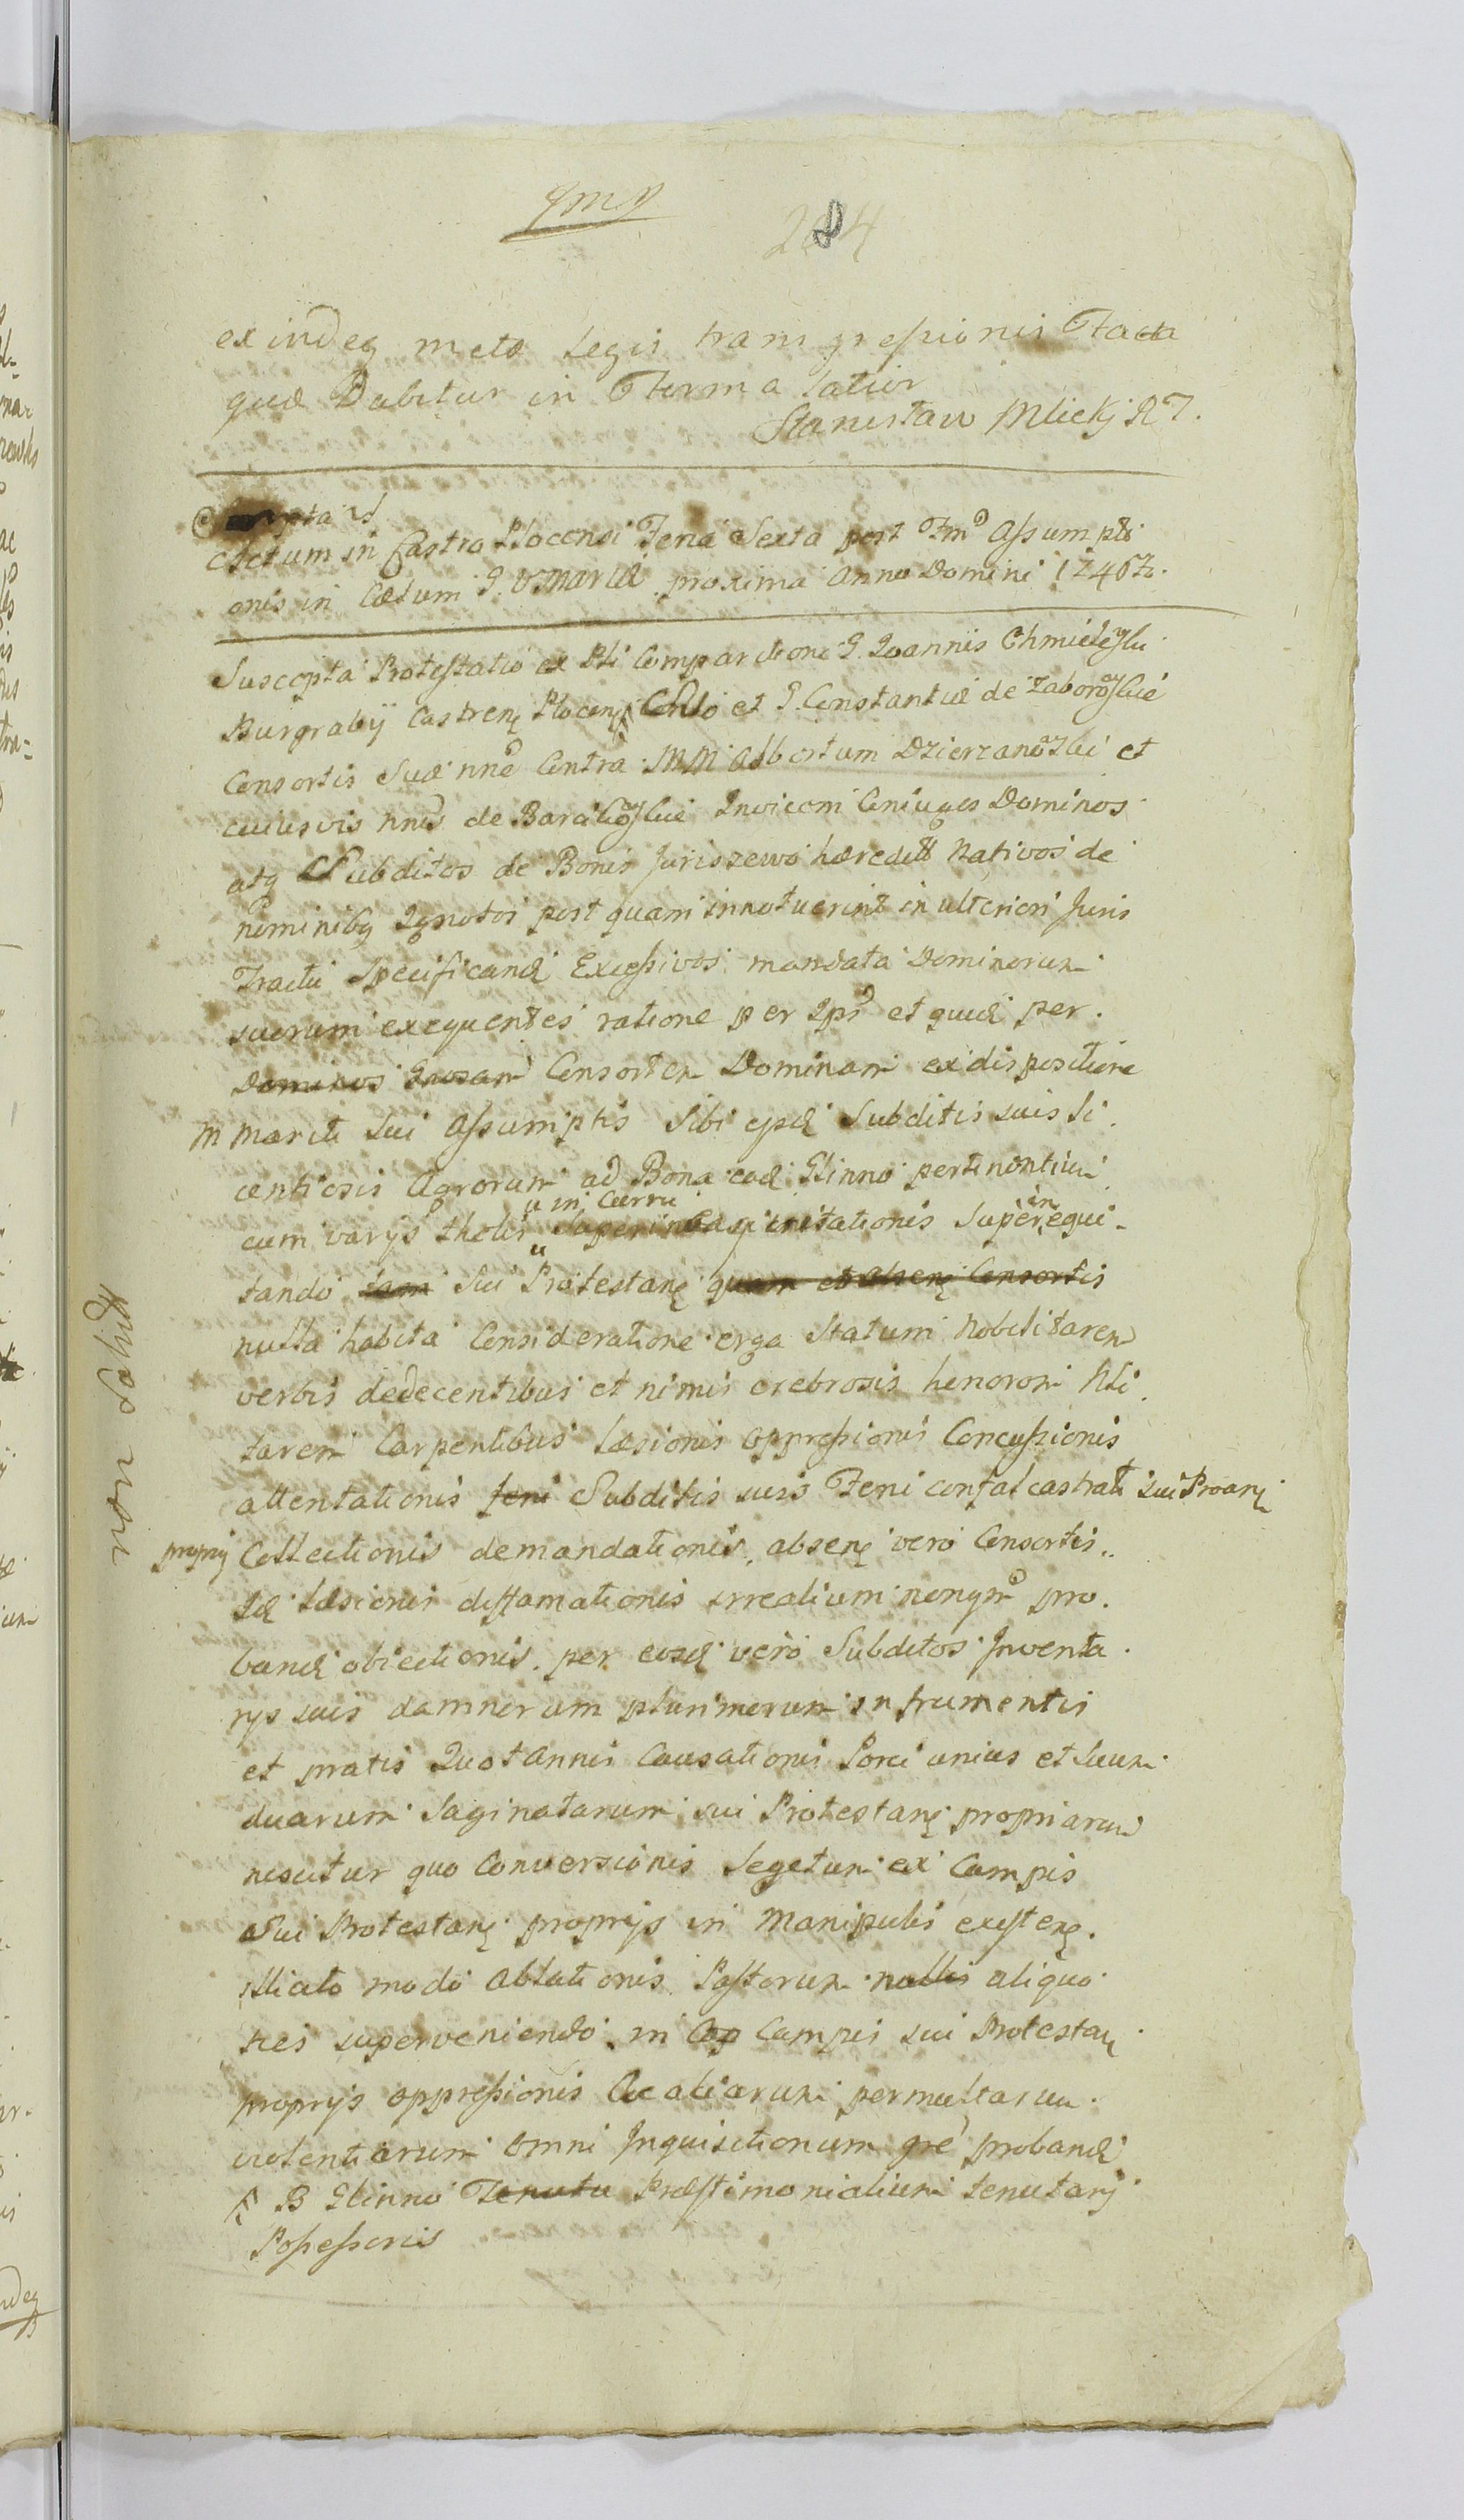 284
exindeq metæ Legis transgressionis Facta
quæ Dabitur in Forma latior
Stanisław Mlicky RT.
Actum in Castro Plocensi Feria Sexta post Assumpti
onis in Cœlum proxima Anno Domini 1746to.
Suscepta Protestatio ex Comparitione G. Ioannis Chmielewski
Burgrabÿ Castren Plocen et G. Constantiæ de Zaborowskie
Consortis Suæ Contra MM Adbertum Dzierzanowski et
cuiusvis de Invicem Coniuges Dominos
atq Subditos de Bonis Juriszewo hæredit Nativos de
nominibq Ignotos post quam innotuerint in ulteriori Juris
Tractu Specificand Excessivos mandata Dominorum
suorum exequentes ratione per et quid per
Dominos Consortem Dominam ex dispositione
M Mariti sui Assumptis Sibi Subditis suis li
centiosis Agrorum ad Bona Glinno pertinentium
in Curru in
cum varÿs Superequi
tando tam sui Protestan quam et absen Consortis
nulla habita Consideratione erga Statum Nobilitarem
verbis dedecentibus et nimis crebrosis honorem Nli
tarem Carpentibus Læsionis oppressionis Concussionis
attentationis feni Subditis suis Feni confalcastrati sui
proprÿ Collectionis demandationis, absen vero Consortis
Læsionis diffamationis irrealium pro
band obiectionis per eosd vero Subditos Inventa
rÿs suis damnorum plurimorum in frumentis
et pratis Quotannis Causationis Porci unius et Suum
duarum Saginatarum sui Protestan propriarum
nescitur quo Conversionis Segetum ex Campis
sui Protestan proprÿs in Manipulis existen
illicito modo Ablationis Pastorum nullis aliquo
ties superveniendo in Cap Campis sui Protestan
proprÿs oppressionis Ac aliarum permultarum
violentiarum omni Inquisitionum gre proband
B Glinno Tenutu Præstimonialium tenutarÿ
Possessoris
non solvit